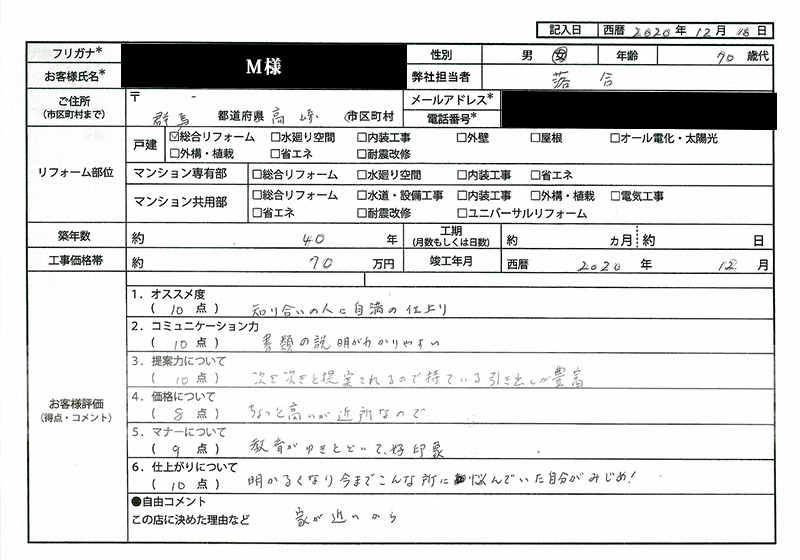 記入日 西暦 2020 年 12 月 18 日
フリガナ* 性別 男 女 年齢 70 歳代
お客様氏名* M様 弊社担当者 落合
ご住所 〒 - メールアドレス*
(市区町村まで) 群馬 都道府県 高崎 市区町村 電話番号*
リフォーム部位
戸建 ☑総合リフォーム □水廻り空間 □内装工事 □外壁 □屋根 □オール電化・太陽光
□外構・植栽 □省エネ □耐震改修
マンション専有部 □総合リフォーム □水廻り空間 □内装工事 □省エネ
マンション共用部 □総合リフォーム □水道・設備工事 □内装工事 □外構・植栽 □電気工事
□省エネ □耐震改修 □ユニバーサルリフォーム
築年数 約 40 年 工期 (月数もしくは日数) 約 カ月 約 日
工事価格帯 約 70 万円 竣工年月 西暦 2020 年 12 月
お客様評価
(得点・コメント)
1．オススメ度
( 10 点 ) 知り合いの人に自満の仕上り
2．コミュニケーション力
( 10 点 ) 書類の説明がわかりやすい
3．提案力について
( 10 点 ) 次を次きと提案されるので持ている引き出しが豊富
4．価格について
( 8 点 ) ちょっと高いが近所なので
5．マナーについて
( 9 点 ) 教育がゆきとどいて、好印象
6．仕上がりについて
( 10 点 ) 明かるくなり今までこんな所に悩んでいた自分がみじめ!
●自由コメント
この店に決めた理由など 家が近いから